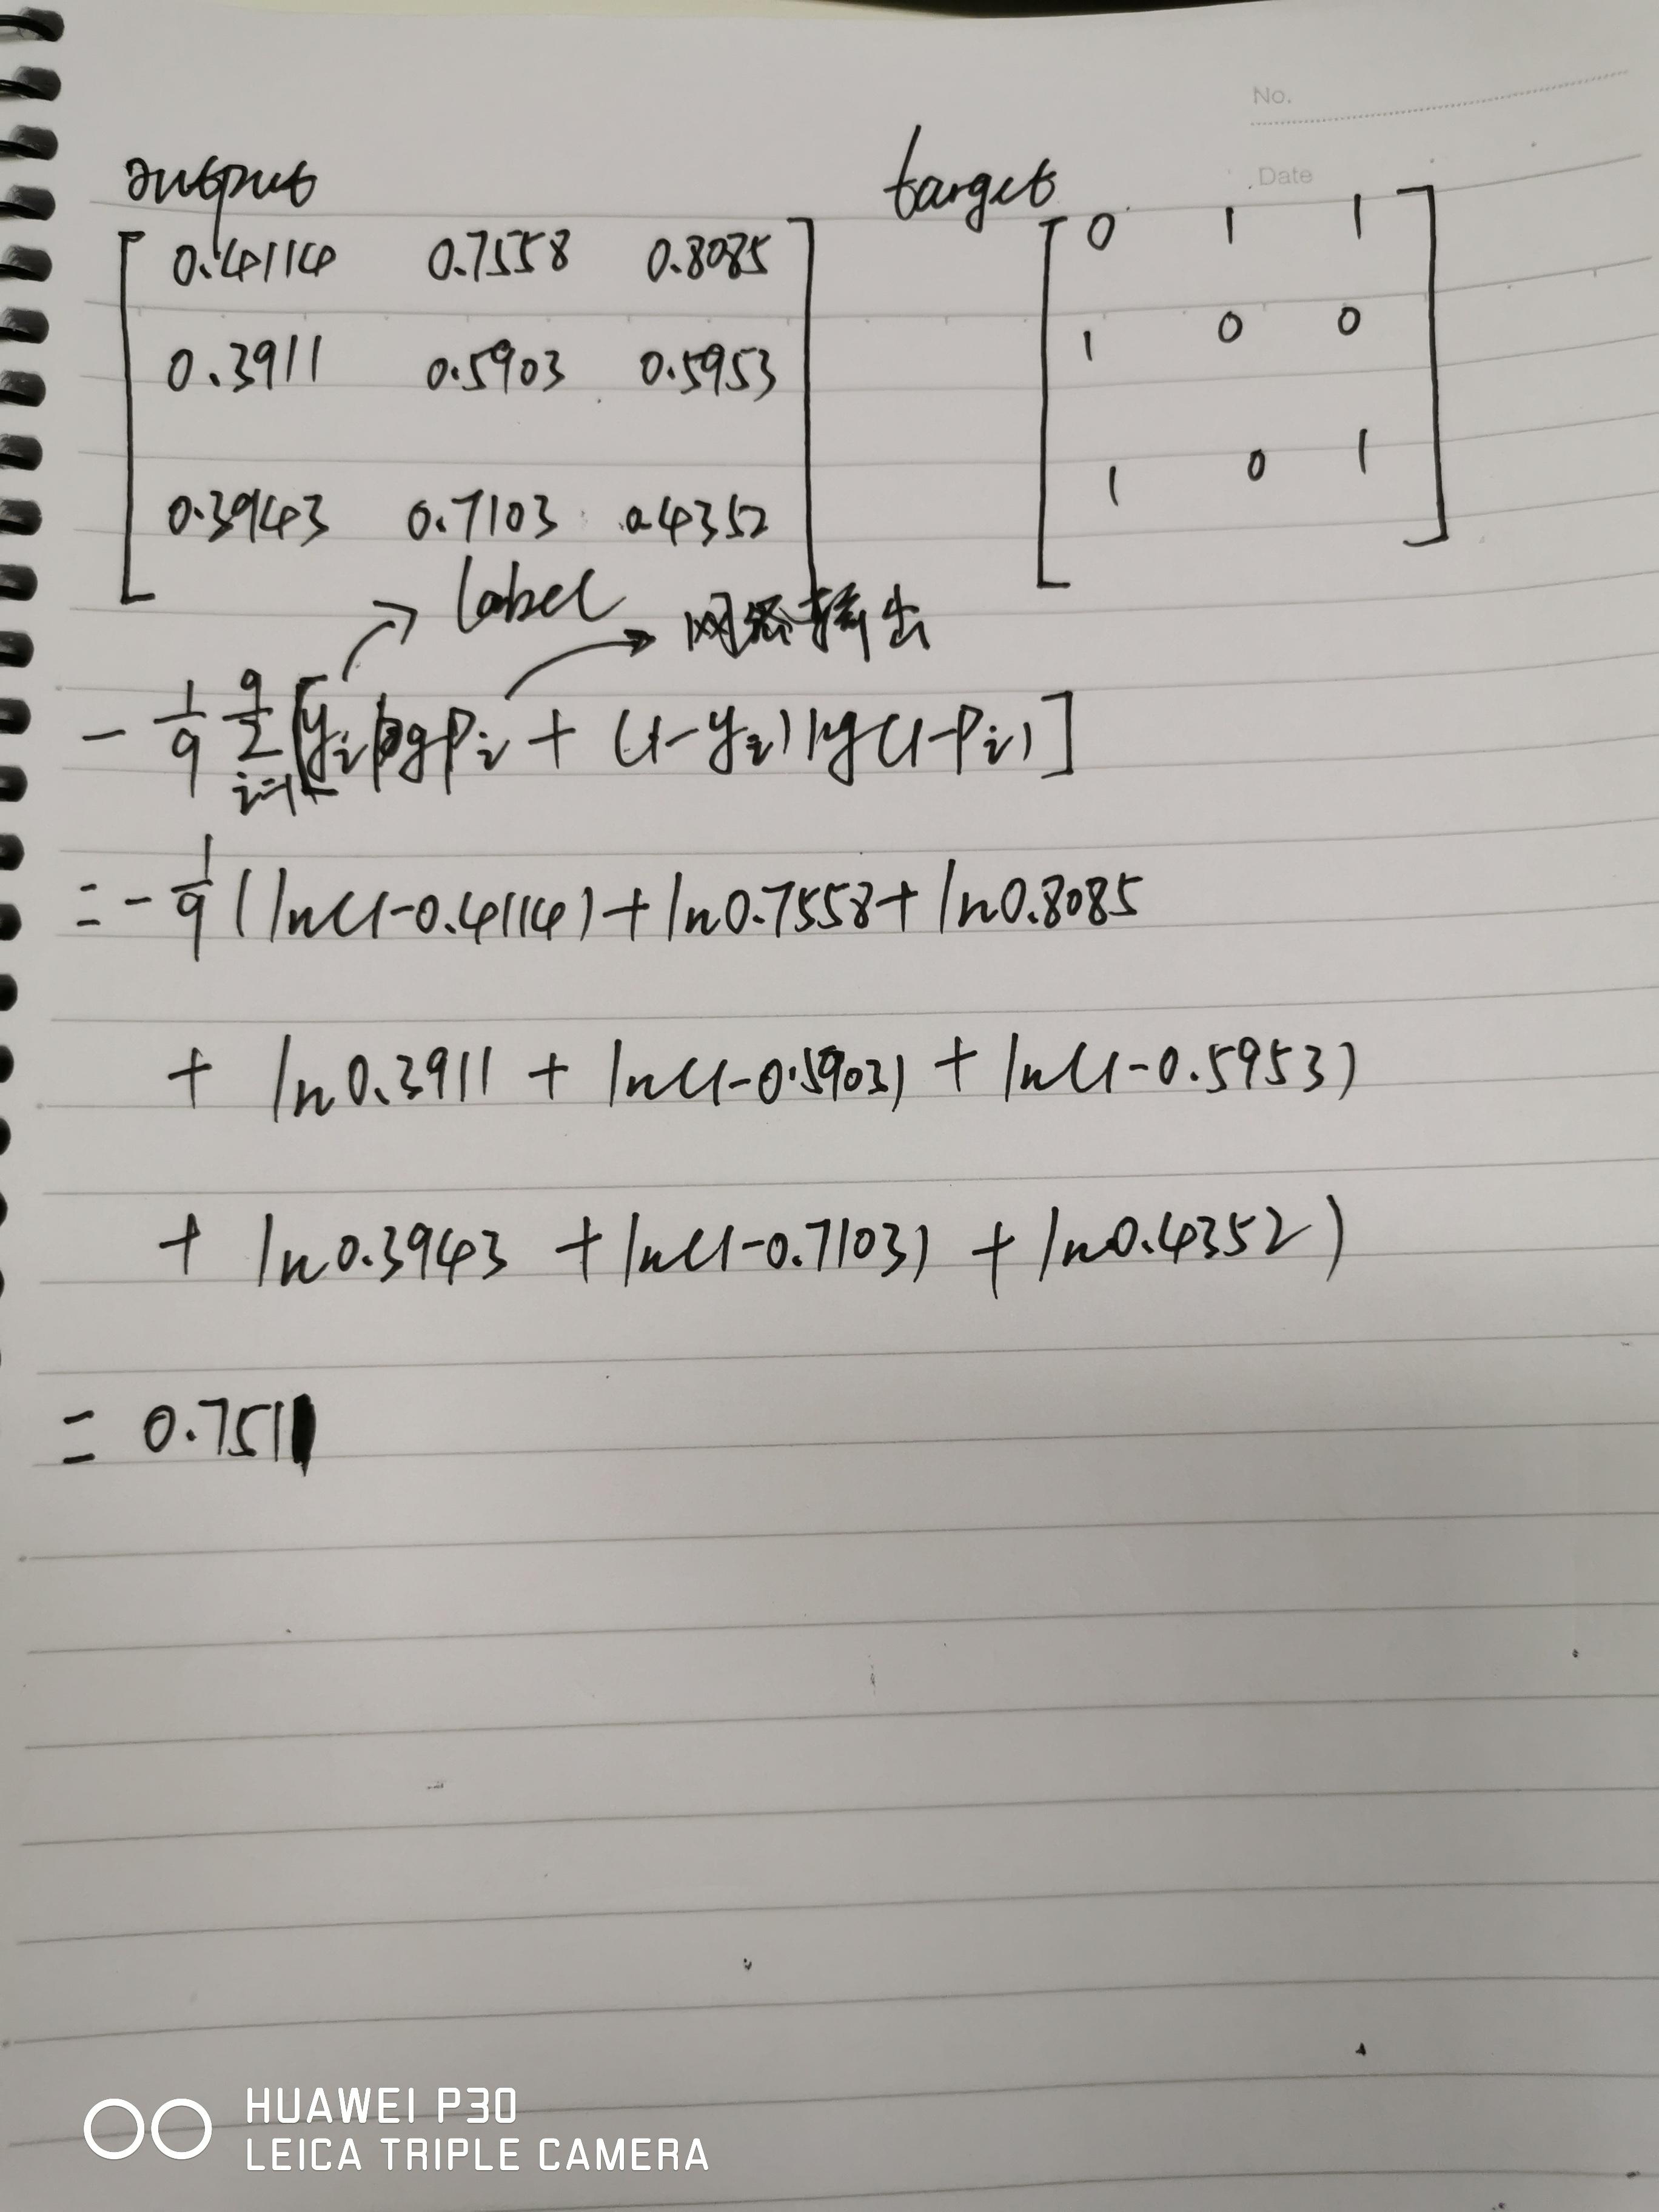 No.
Date
output target
0.4114 0.7558 0.8085 0 1 1
0.3911 0.5903 0.5953 1 0 0
0.3943 0.7103 0.4352 1 0 1
label 网络输出
- 1/9 9∑i=1 [yi log pi + (1-yi) lg (1-pi)]
= - 1/9 (ln(1-0.4114) + ln0.7558 + ln0.8085
+ ln0.3911 + ln(1-0.5903) + ln(1-0.5953)
+ ln0.3943 + ln(1-0.7103) + ln0.4352)
= 0.751
HUAWEI P30
LEICA TRIPLE CAMERA